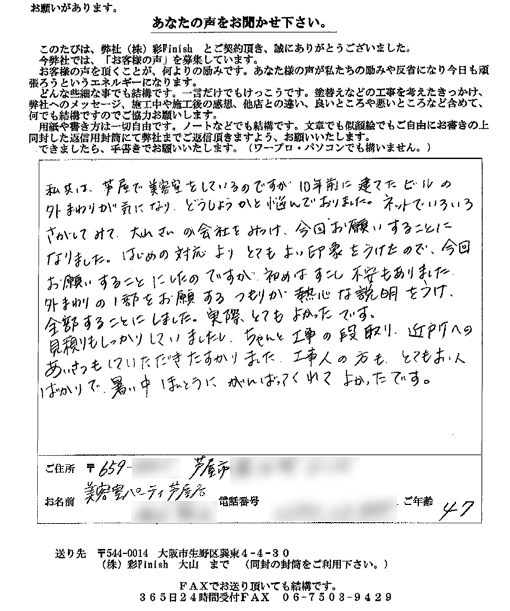 お願いがあります。
あなたの声をお聞かせ下さい。
このたびは、弊社（株）彩Finish とご契約頂き、誠にありがとうございました。
今弊社では、「お客様の声」を募集しています。
お客様の声を頂くことが、何よりの励みです。あなた様の声が私たちの励みや反省になり今日も頑
張ろうというエネルギーになります。
どんな些細な事でも結構です。一言だけでもけっこうです。塗替えなどの工事を考えたきっかけ、
弊社へのメッセージ、施工中や施工後の感想、他店との違い、良いところや悪いところなど含めて、
何でも結構ですのでご協力お願いします。
用紙や書き方は一切自由です。ノートなどでも結構です。文章でも似顔絵でもご自由にお書きの上
同封した返信用封筒にて弊社までご返信頂きますよう、お願いいたします。
できましたら、手書きでお願いいたします。（ワープロ・パソコンでも構いません。）
私共は、芦屋で美容室をしているのですが10年前に建てたビルの
外まわりが気になり、どうしようかと悩んでおりました。ネットでいろいろ
さがしてみて、大山さんの会社をみつけ、今回お願いすることに
なりました。はじめの対応よりとてもよい印象をうけたので、今回
お願いすることにしたのですが、初めはすこし不安もありました。
外まわりの1部をお願するつもりが熱心な説明をうけ、
全部することにしました。実際、とてもよかったです。
見積りもしっかりしていましたし、ちゃんと工事の段取り、近所への
あいさつもしていただきたすかりました。工事人の方も、とてもお人
ばかりで、暑い中ほんとうにがんばってくれてよかったです。
ご住所 〒659- 芦屋市
お名前 美容室パーティ芦屋店 電話番号 ご年齢 47
送り先 〒544-0014 大阪市生野区巽東4-4-30
（株）彩Finish 大山 まで （同封の封筒をご利用下さい。）
FAXでお送り頂いても結構です。
365日24時間受付FAX 06-7503-9429